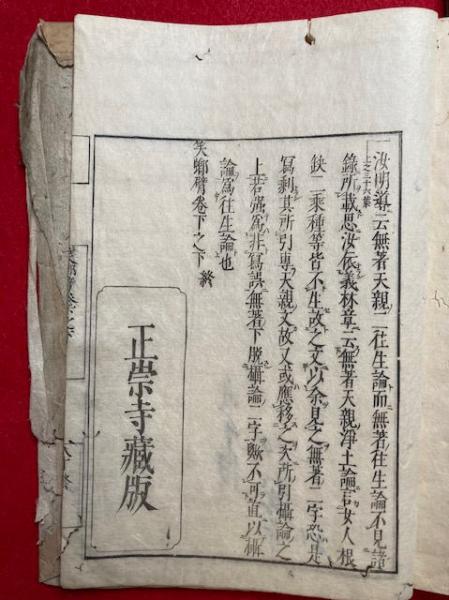 一汝明導云無著天親二往生論而無著往生論不見諸
上之三十六葉
錄所載思汝依義林章云無著天親淨土論言女人根
缺二乘種等皆不生故之文以余見之無著二字恐是
寫剩其所引專天親文故又或應移之次所引攝論之
上若強爲非寫誤無著下脫攝論二字歟不可直以攝
論爲往生論也
笑螂臂卷下之下 終
正崇寺藏版